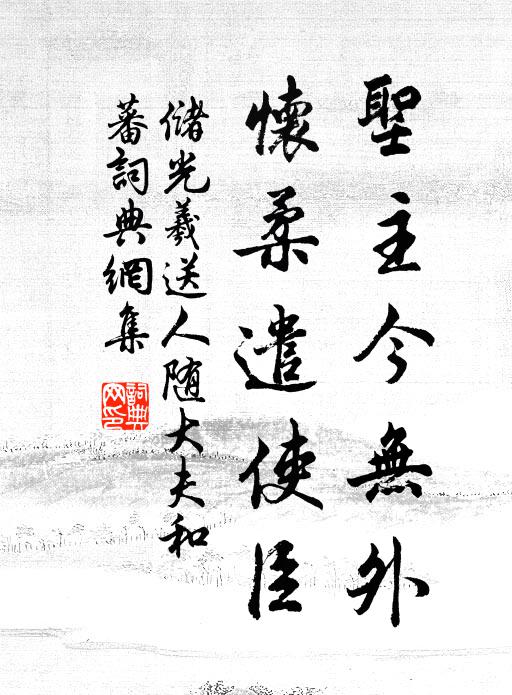 聖主今無外
懷柔遣使臣
儲光羲送人随大夫和
蕃詞典網集
詞典
网印